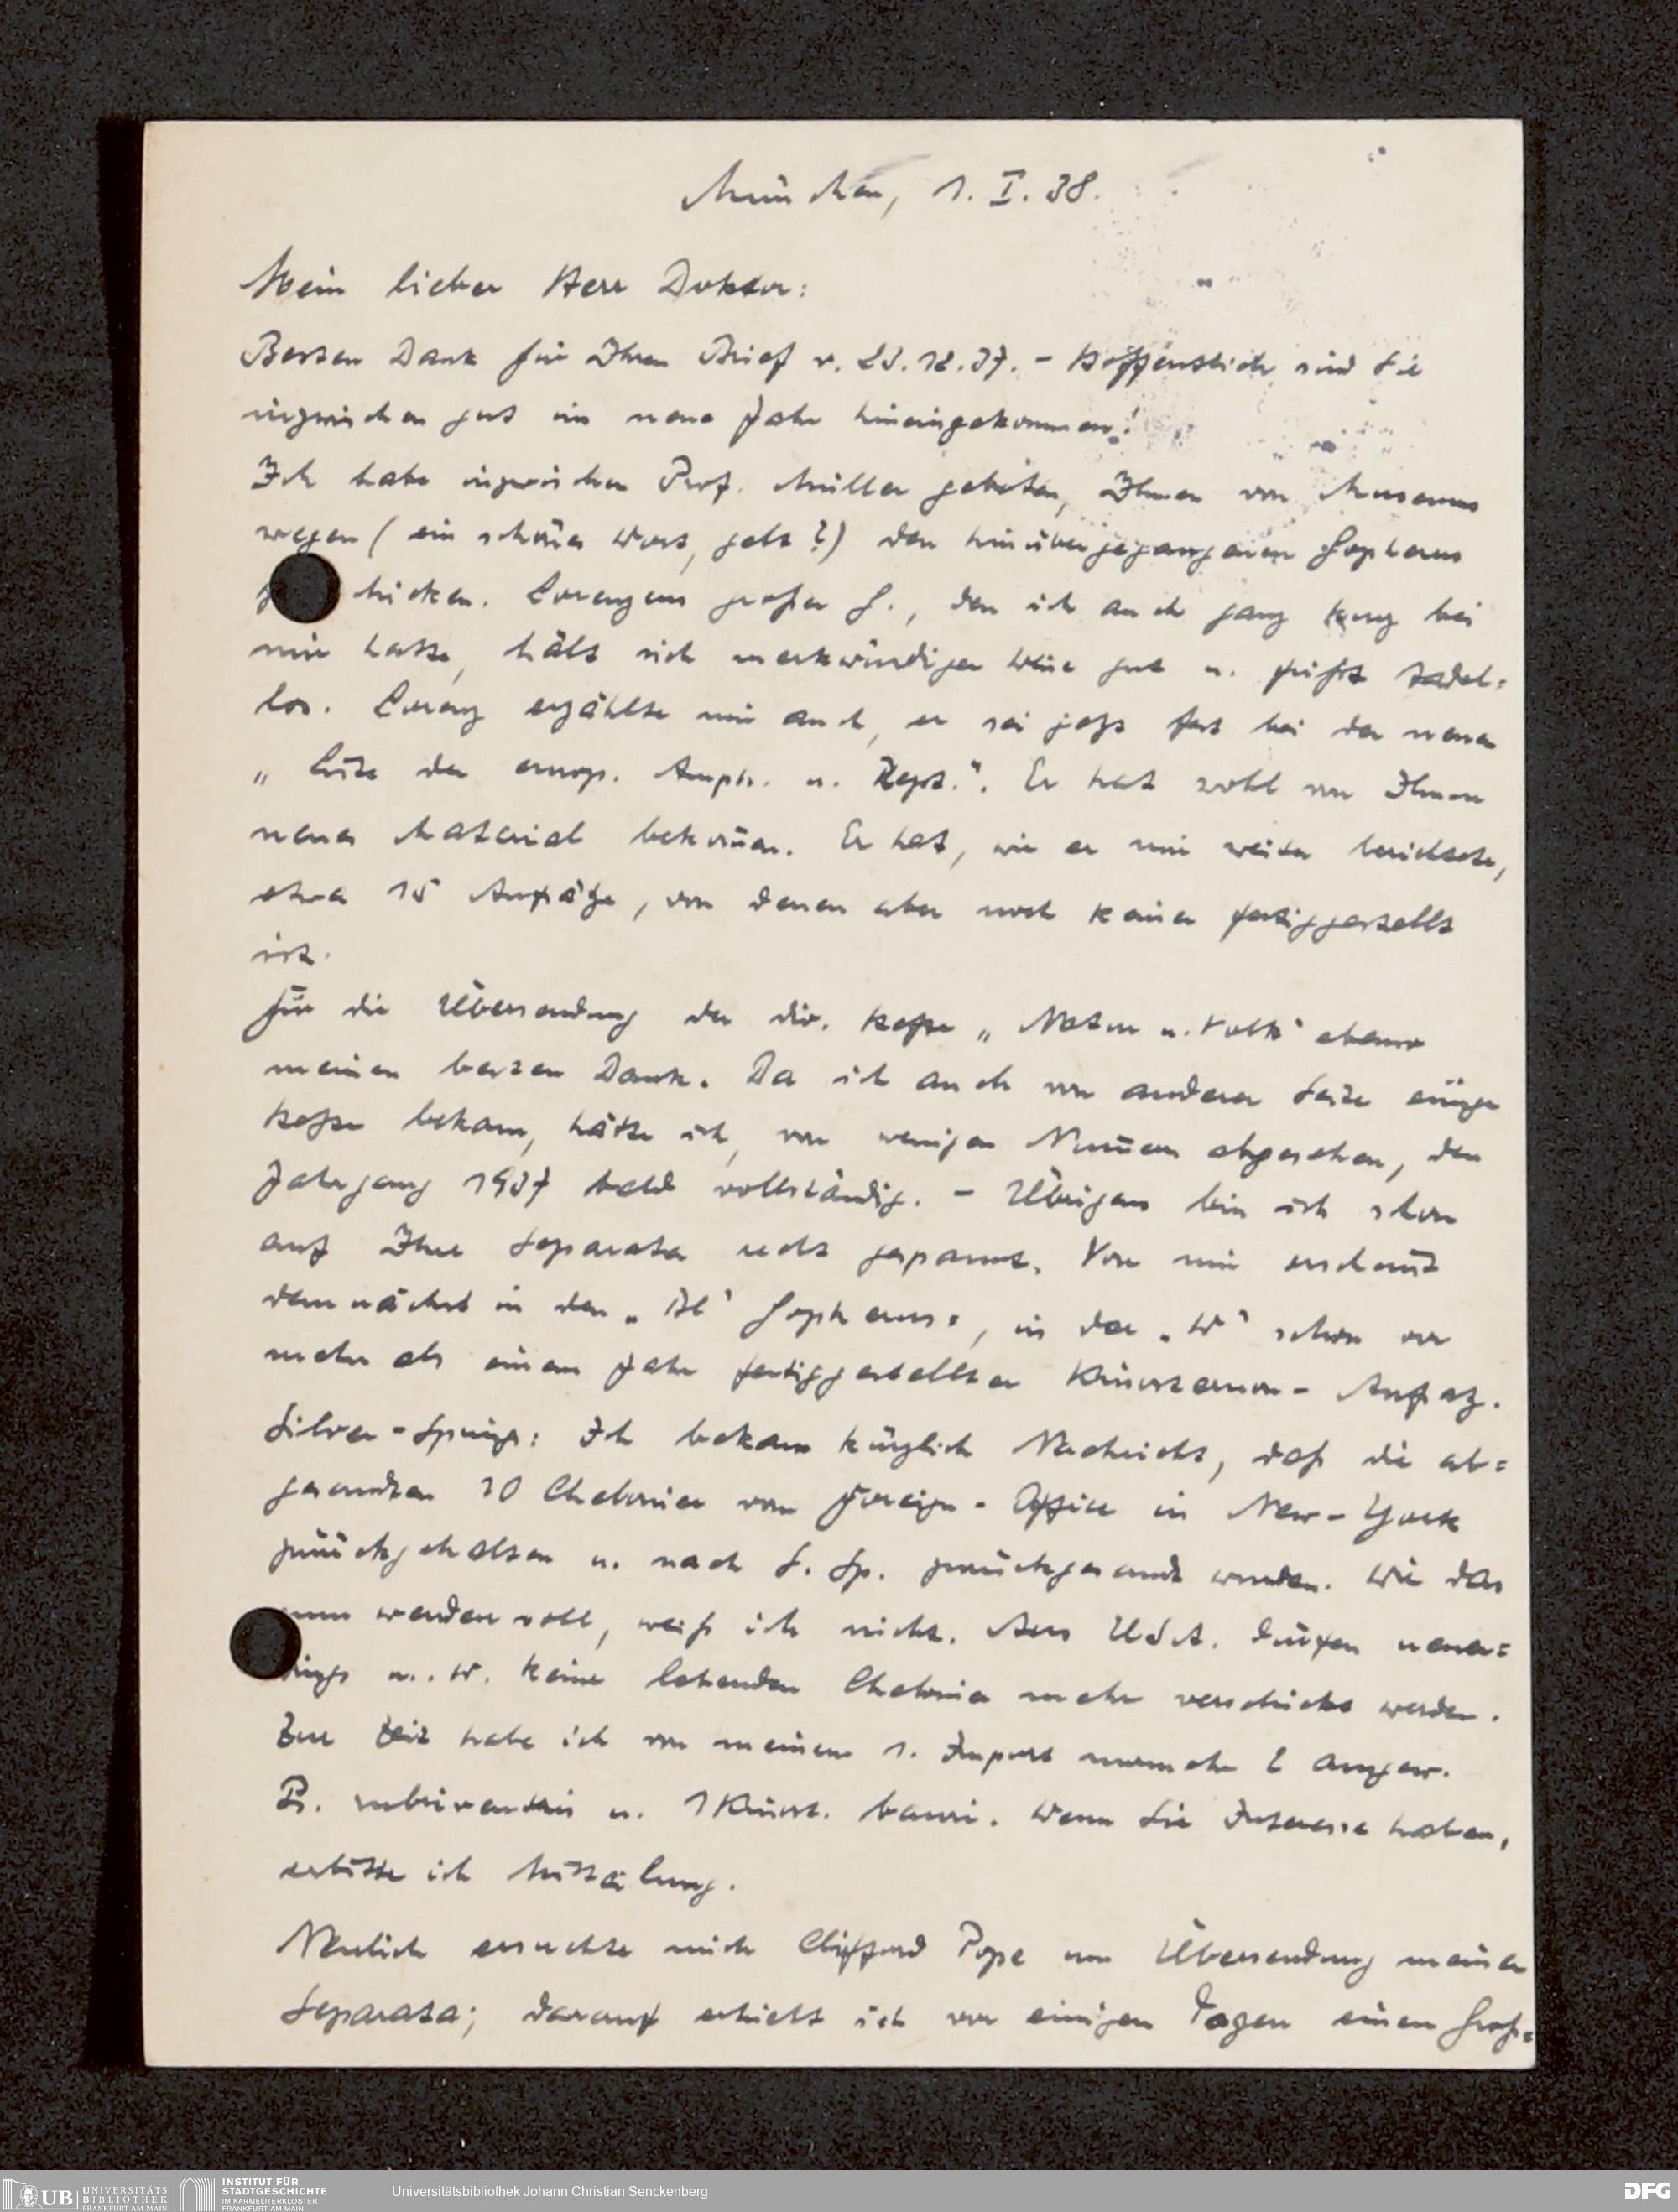 München, 1. I. 38.
Mein lieber Herr Doktor:
Besten Dank für Ihren Brief v. 23.12.37. – Hoffentlich sind Sie
inzwischen gut ins neue Jahr hineingekommen!
Ich habe inzwischen Prof. Müller gebeten, Ihnen von Museums
wegen (ein schönes Wort, gelt?) den hinübergegangenen Gopherus
zu schicken. Lorenzens großer G., den ich auch ganz kurz bei
mir hatte, hält sich merkwürdiger Weise gut u. frißt tadel=
los. Lorenz erzählte mir auch, er sei jetzt fest bei der neuen
„Liste der europ. Amph. u. Rept.“. Er hat wohl von Ihnen
neues Material bekom̅en. Er hat, wie er mir weiter berichtete,
etwa 15 Aufsätze, von denen aber noch keiner fertiggestellt
ist.
Für die Übersendung der div. Hefte „Natur u. Volk“ ebenso
meinen besten Dank. Da ich auch von anderer Seite einige
Hefte bekam, hätte ich, von wenigen Num̅ern abgesehen, den
Jahrgang 1937 bald vollständig. – Übrigens bin ich schon
auf Ihre Separata recht gespannt. Von mir erscheint
demnächst in den „Bl“ Gopherus, in der „W“ schon vor
mehr als einem Jahr fertiggestellter Kinosternon-Aufsatz.
Silver-Springs: Ich bekam kürzlich Nachricht, daß die ab=
gesandten 10 Chelonier vom Foreign-Office in New-York
zurückgehalten u. nach S. Sp. zurückgesandt wurden. Wie das
nun werden soll, weiß ich nicht. Aus USA. dürfen neuer=
dings u. W. keine lebenden Chelonia mehr verschickt werden.
Zur Zeit habe ich von meinem 1. Import nunmehr 2 ausgew.
Ps. rubriventris u. 1 Kinost. bauri. Wenn Sie Interesse haben,
erbitte ich Mitteilung.
Neulich ersuchte mich Clifford Pope um Übersendung meiner
Separata; darauf erhielt ich vor einigen Tagen einen Groß=
UB UNIVERSITÄTS
BIBLIOTHEK
FRANKFURT AM MAIN
INSTITUT FÜR
STADTGESCHICHTE
IM KARMELITERKLOSTER
FRANKFURT AM MAIN
Universitätsbibliothek Johann Christian Senckenberg
DFG